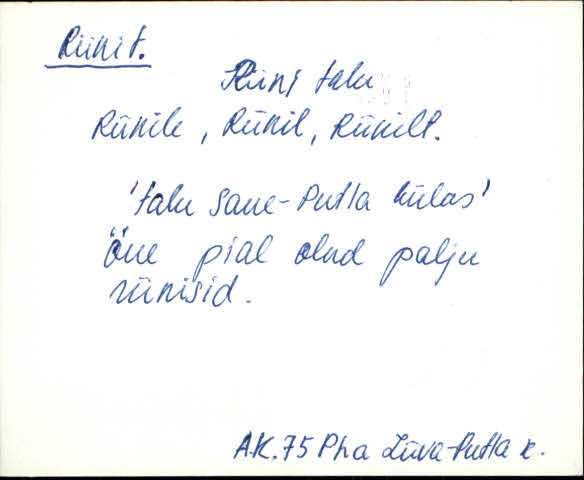 Rünit.
Rüni talu
Rünile, Rünil, Rünilt.
'talu Saue-Putla külas'
Õue pial olnd palju
rünisid.
A.K. 75 Pha Liiva-Putla k.